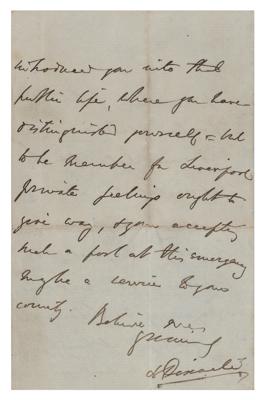 introduced you into that
public life, where you have
distinguished yourself - but
to be member for Liverpool
private feelings ought to
give way, & your accepting
such a post at this emergency
may be a service to your
country.
Believe me,
yrs sincerely
Disraeli